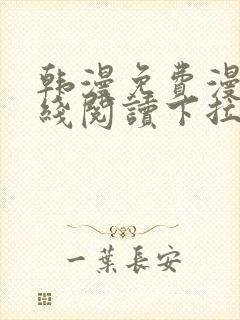 韩漫免费漫
线阅读下拉
一叶长安